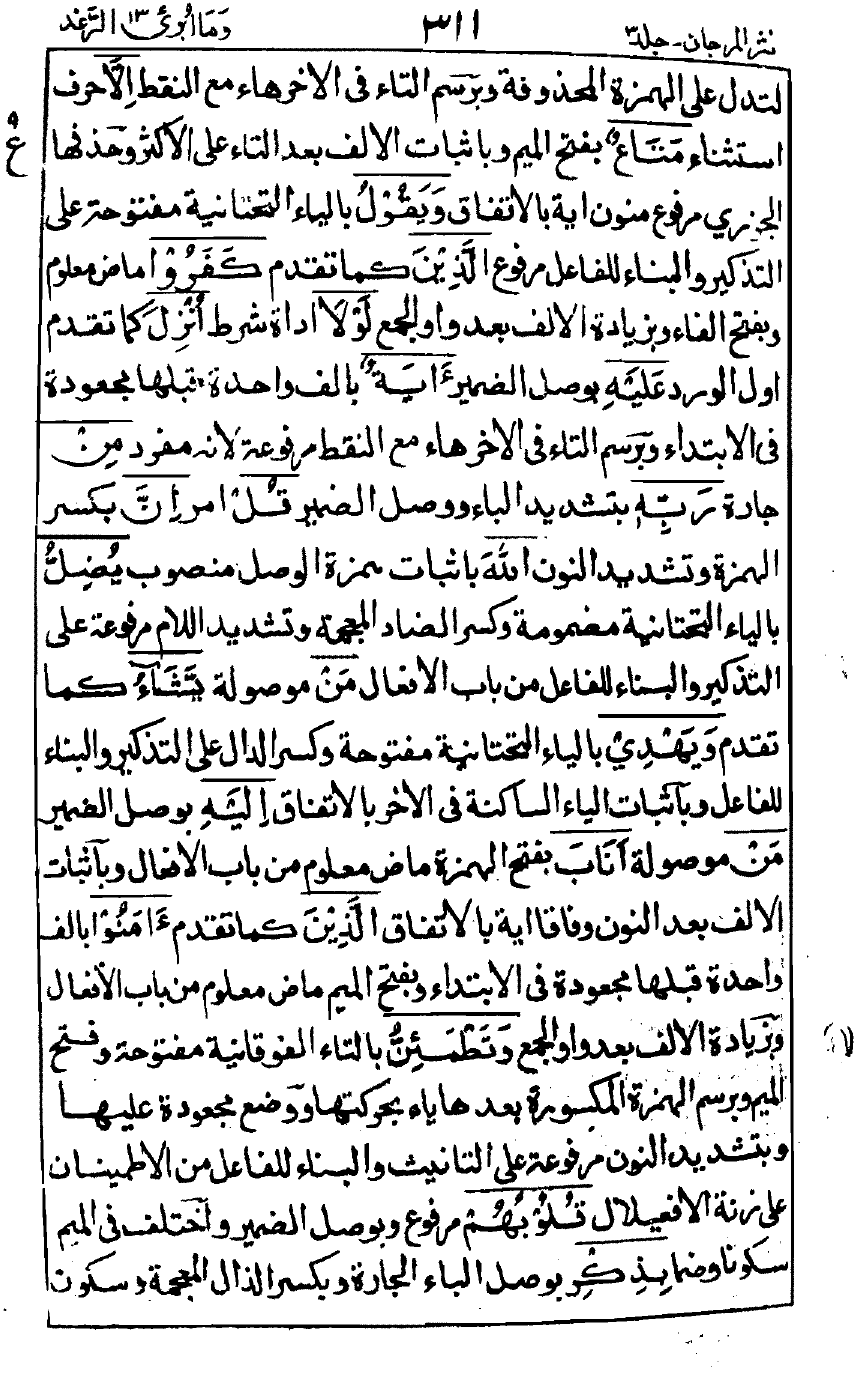 نثر المرجان - جلد ٣ ٣١١ وما ابرئ ١٣ الرعد
لتدل على الهمزة المحذوفة وبرسم التاء فى الاخر هاء مع النقط اِلَّا حرف
استثناء مَتَاعٌ بفتح الميم وباثبات الالف بعد التاء على الاكثر وحذفها
الجزري مرفوع منون اية بالاتفاق وَيَقُوْلُ بالياء التحتانية مفتوحة على
التذكير والبناء للفاعل مرفوع الَّذِيْنَ كما تقدم كَفَرُوْا ماض معلوم
وبفتح الفاء وبزيادة الالف بعد واو الجمع لَوْلَا اداة شرط اُنْزِلَ كما تقدم
اول الورد عَلَيْهِ بوصل الضمير ءَايَةٌ بالف واحدة قبلها مجعودة
فى الابتداء وبرسم التاء فى الاخر هاء مع النقط مرفوعة لانه مفرد مِنْ
جارة رَبِّهِ بتشديد الباء ووصل الضمير قُلْ امر اِنَّ بكسر
الهمزة وتشديد النون اللهَ باثبات همزة الوصل منصوب يُضِلُّ
بالياء التحتانية مضمومة وكسر الضاد المعجمة وتشديد اللام مرفوعة على
التذكير والبناء للفاعل من باب الافعال مَنْ موصولة يَّشَآءُ كما
تقدم وَيَهْدِيْ بالياء التحتانية مفتوحة وكسر الدال على التذكير والبناء
للفاعل وباثبات الياء الساكنة فى الاخر بالاتفاق اِلَيْهِ بوصل الضمير
مَنْ موصولة اَنَابَ بفتح الهمزة ماض معلوم من باب الافعال وباثبات
الالف بعد النون وفاقا اية بالاتفاق الَّذِيْنَ كما تقدم ءَامَنُوْا بالف
واحدة قبلها مجعودة فى الابتداء وبفتح الميم ماض معلوم من باب الافعال
وبزيادة الالف بعد واو الجمع وَتَطْمَئِنُّ بالتاء الفوقانية مفتوحة وفتح
الميم وبرسم الهمزة المكسورة بعدها ياء بحركتها ووضع مجعودة عليها
وبتشديد النون مرفوعة على التانيث والبناء للفاعل من الاطمينان
على زنة الافعيلال قُلُوْبُهُمْ مرفوع وبوصل الضمير واختلف فى الميم
سكونا وضما بِذِكْرِ بوصل الباء الجارة وبكسر الذال المعجمة وسكون